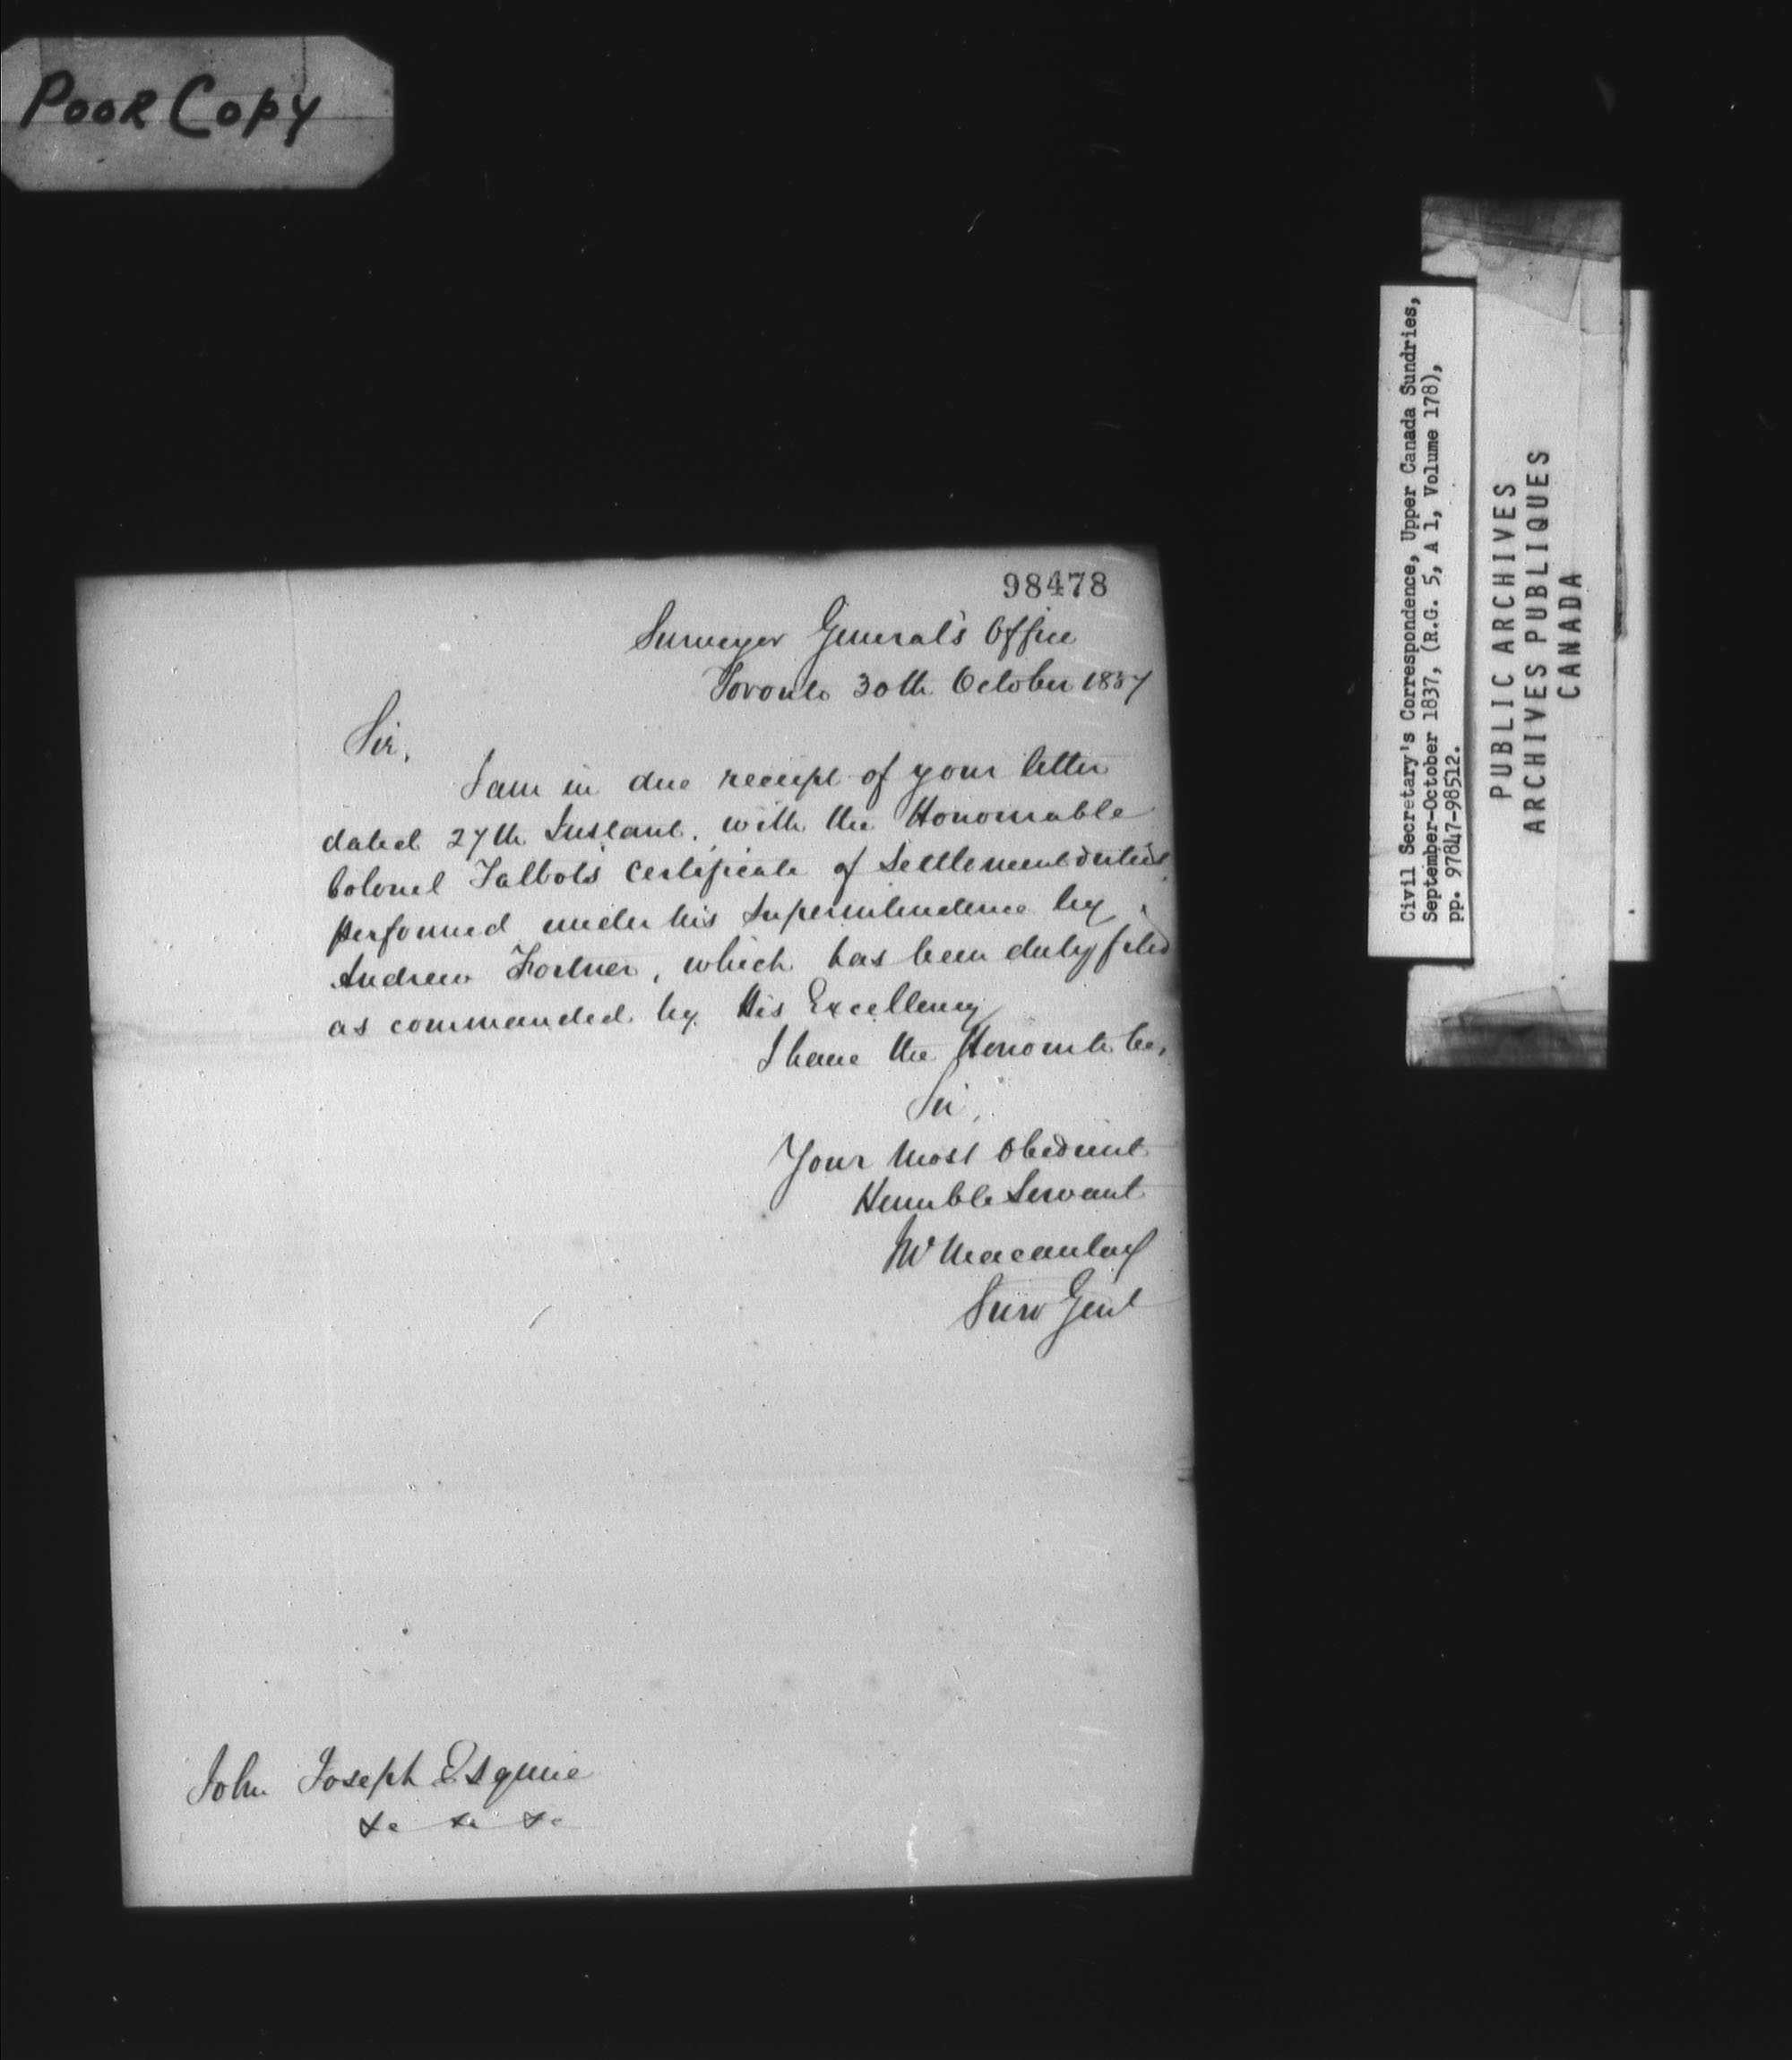 Poor Copy
98478
Surveyor General's Office
Toronto 30th October 1837
Sir,
I am in due receipt of your letter
dated 27th Instant, with the Honourable
Colonel Talbot's Certificate of Settlement duties
performed under his Superintendence by
Andrew Fortner, which has been duly filed
as commanded by His Excellency
I have the Honour to be,
Sir,
Your Most Obedient
Humble Servant
JW Macaulay
Surv Genl
John Joseph Esquire
&c &c &c
Civil Secretary's Correspondence, Upper Canada Sundries,
September-October 1837, (R.G. 5, A 1, Volume 178),
pp. 97847-98512.
PUBLIC ARCHIVES
ARCHIVES PUBLIQUES
CANADA